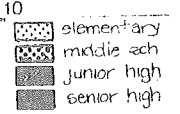 10
elementary
middle sch
junior high
senior high